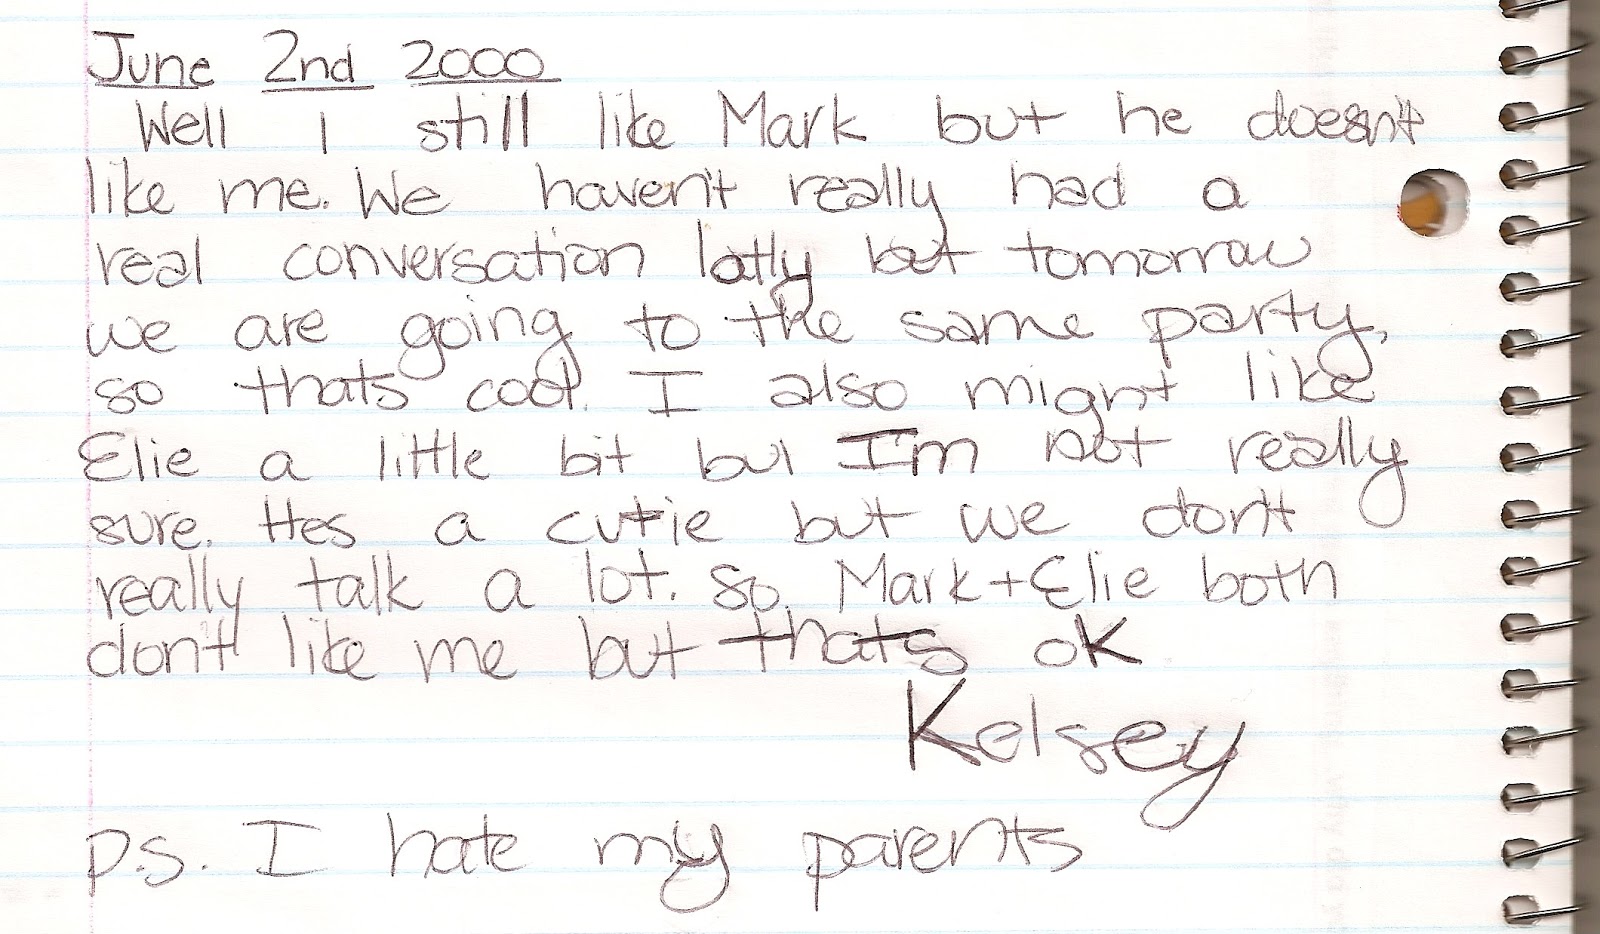 June 2nd 2000
Well I still like Mark but he doesn't
like me. We haven't really had a
real conversation latly but tomorrow
we are going to the same party,
so thats cool. I also might like
Elie a little bit but I'm not really
sure. Hes a cutie but we don't
really talk a lot. So, Mark + Elie both
don't like me but thats ok
Kelsey
p.s. I hate my parents